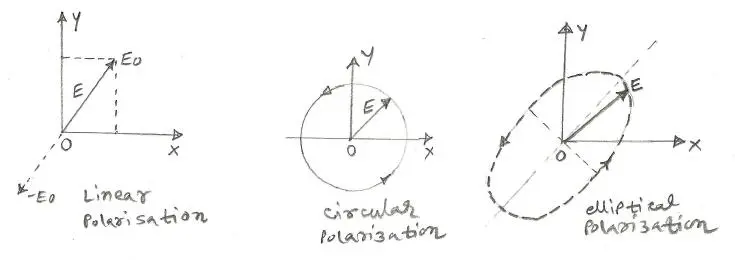 Y
E0
E
O
X
-E0
Linear
Polarisation
Y
E
O
circular
Polarization
Y
E
O
X
elliptical
Polarization